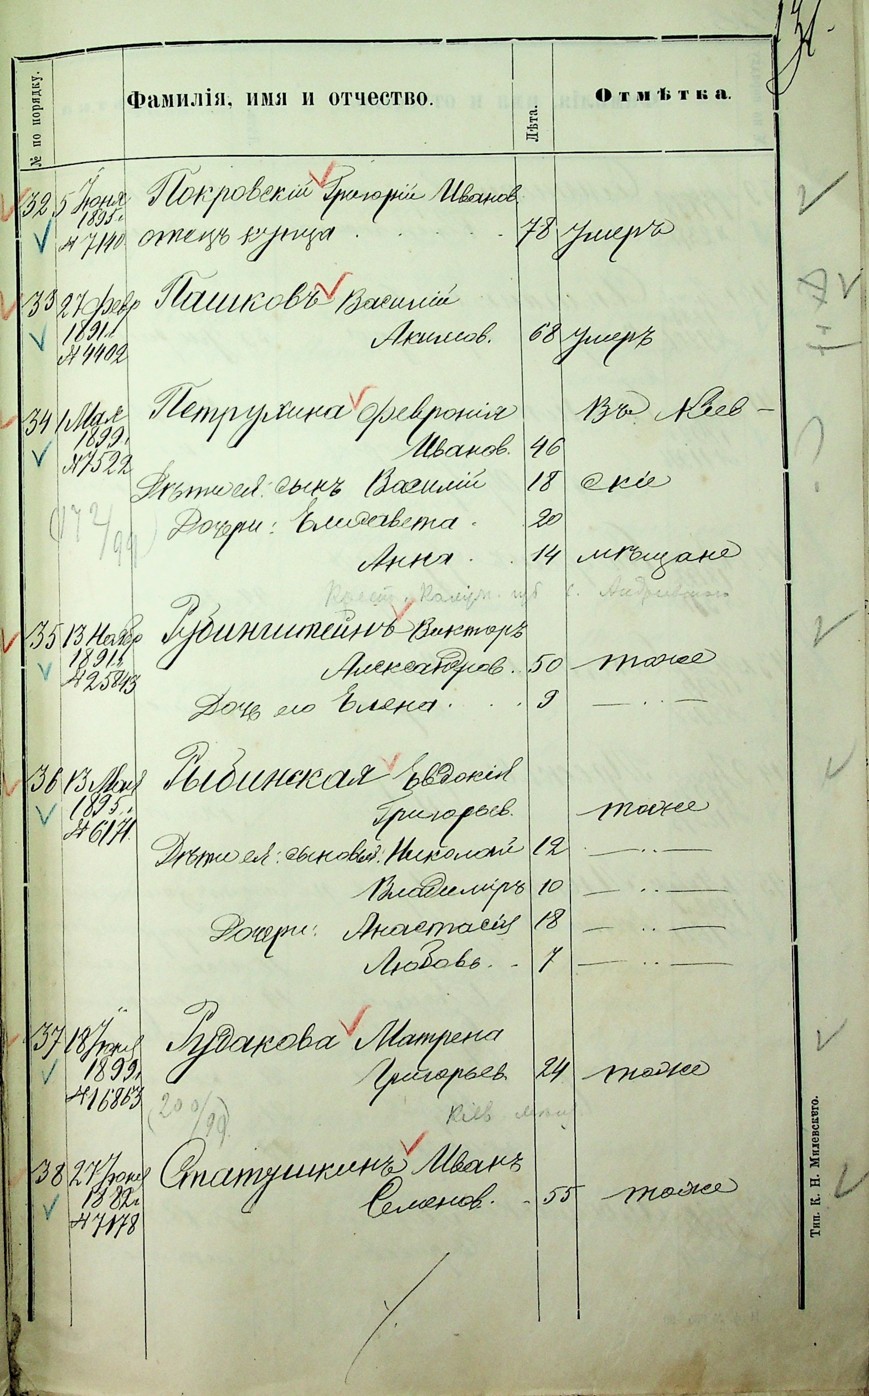 № по порядку.
Фамилія, имя и отчество.
Лѣта.
Отмѣтка.
32 5 Іюня Покровскій Григорій Иванов
1895 г.
№ 7140 отецъ купца 78 умеръ
33 27 февр Пашковъ Василій
1891 г. Акимов. 68 умеръ
№ 4402
34 1 Мая Петрухина Февронія Въ Кіев-
1899 г. Иванов. 46
№ 7522
Дѣти ея: сынъ Василій 18 скіе
(172/99) Дочери: Елисавета. 20
Анна 14 мѣщане
Крест. Калуж. губ.
35 13 Ноябр Рубинштейнъ Викторъ
1891 г. Александров. 50 тоже
№ 25843
Дочь его Елена. 9 — „ —
36 13 Мая Рыбинская Евдокія
1895 г. Григорьев. тоже
№ 6171.
Дѣти ея: сыновья: Николай 12 — „ —
Владиміръ 10 — „ —
Дочери: Анастасія 18 — „ —
Любовь. 7 — „ —
37 18 Рудакова Матрена
1899 г. Григорьев 24 тоже
№ 16863
(200/99) Кіев.
38 27 Статушкинъ Иванъ
1882 г. Семенов. 55 тоже
№ 7178
Тип. К. Н. Милевскаго.